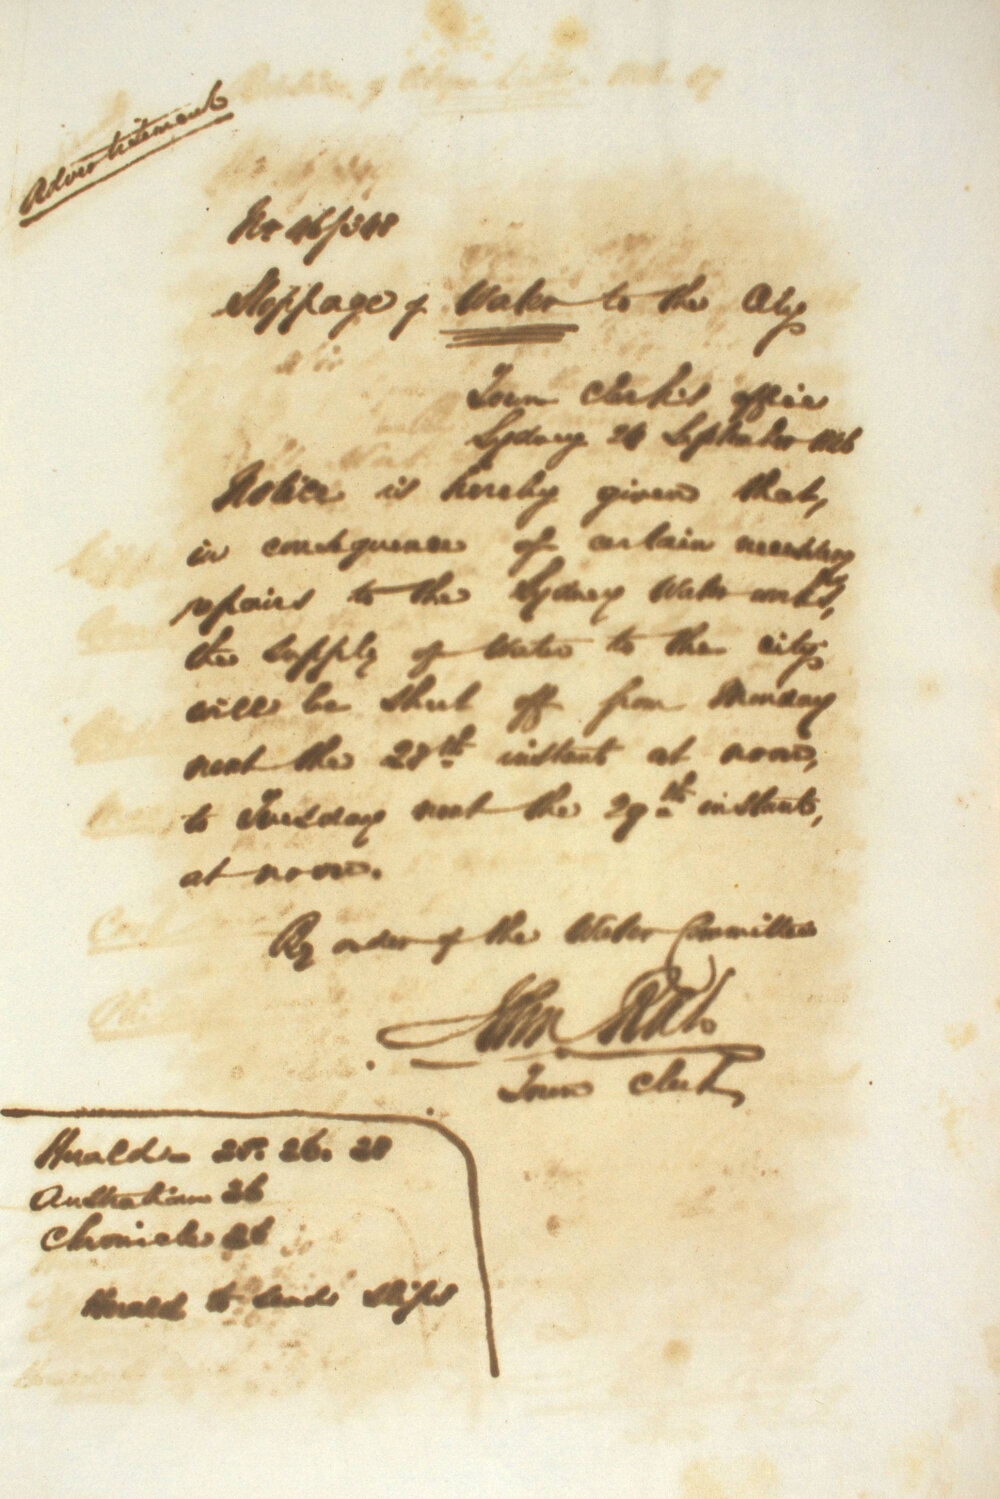 Advertisement
No 46/348
Stoppage of Water to the City
Town Clerk's office
Sydney 24 September 1846
Notice is hereby given that,
in consequence of certain necessary
repairs to the Sydney Water works,
the supply of Water to the city
will be shut off from Monday
next the 28th instant at noon,
to Tuesday next the 29th instant,
at noon.
By order of the Water Committee
John
Town Clerk
Herald 25. 26. 28
Australian 26
Chronicle 26
Herald to send slips